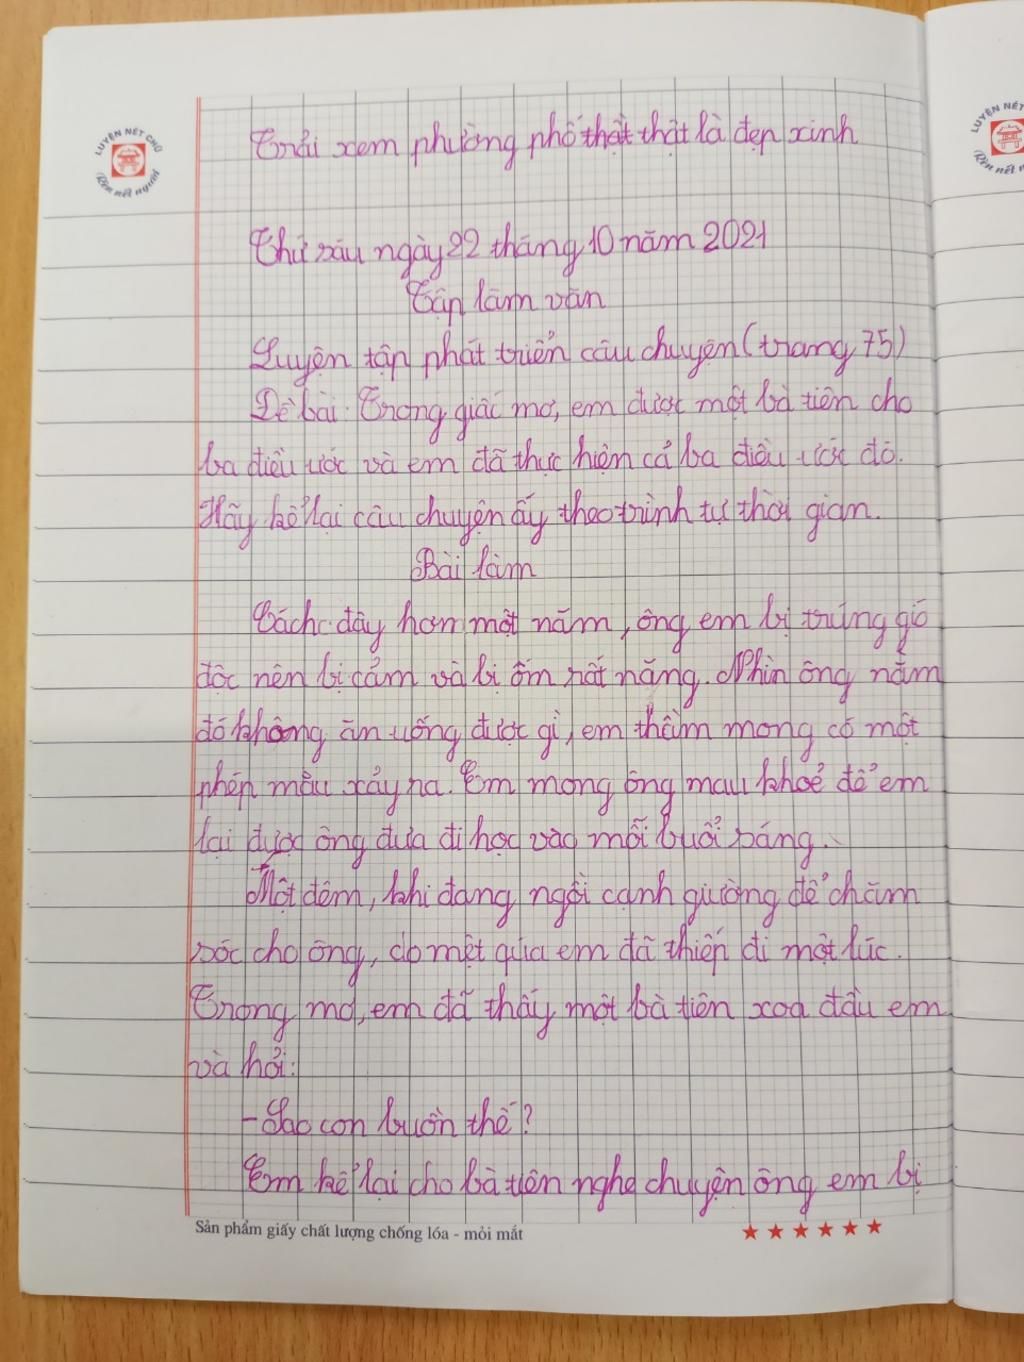 LUYỆN NÉT CHỮ
Rèn nết người
LUYỆN NÉT
Rèn nết n
Trải xem phường phố thật thật là đẹp xinh
Thứ sáu ngày 22 tháng 10 năm 2021
Tập làm văn
Luyện tập phát triển câu chuyện (trang 75)
Đề bài: Trong giấc mơ, em được một bà tiên cho
ba điều ước và em đã thực hiện cả ba điều ước đó.
Hãy kể lại câu chuyện ấy theo trình tự thời gian.
Bài làm
Cách đây hơn một năm, ông em bị trúng gió
độc nên bị cảm và bị ốm rất nặng. Nhìn ông nằm
đó không ăn uống được gì, em thầm mong có một
phép mầu xảy ra. Em mong ông mau khoẻ để em
lại được ông đưa đi học vào mỗi buổi sáng.
Một đêm, khi đang ngồi cạnh giường để chăm
sóc cho ông, do mệt qúa em đã thiếp đi một lúc.
Trong mơ, em đã thấy một bà tiên xoa đầu em
và hỏi:
- Sao con buồn thế?
Em kể lại cho bà tiên nghe chuyện ông em bị
Sản phẩm giấy chất lượng chống lóa - mỏi mắt